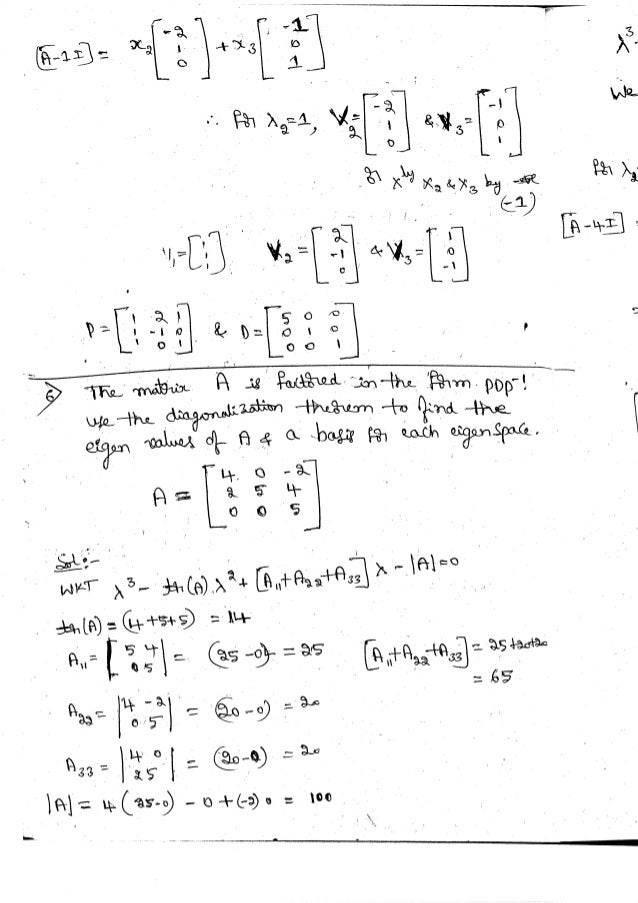 [A-1I] = x₂ [-2 1 0] + x₃ [-1 0 1]
λ³-
We
∴ for λ₂=1, V₂= [-2 1 0] & V₃= [-1 0 1]
or xly x₂ & x₃ by (-1)
for λ₂
[A-4I]
V₁=[1 1 1] V₂ = [2 -1 0] & V₃= [1 0 -1]
P = [1 2 1; 1 -1 0; 1 0 1] & D = [5 0 0; 0 1 0; 0 0 1]
6> The matrix A is factored in the form PDP⁻!
use the diagonalization theorem to find the
eigen values of A & a basis for each eigen space.
A = [4 0 -2; 2 5 4; 0 0 5]
Sol:-
WKT λ³ - tr(A).λ² + [A₁₁+A₂₂+A₃₃] λ - |A|=0
tr(A) = (4+5+5) = 14
A₁₁ = |5 4; 0 5| = (25-0) = 25 [A₁₁+A₂₂+A₃₃] = 25+20+20
= 65
A₂₂ = |4 -2; 0 5| = (20-0) = 20
A₃₃ = |4 0; 2 5| = (20-0) = 20
|A| = 4(25-0) - 0+(-2)0 = 100